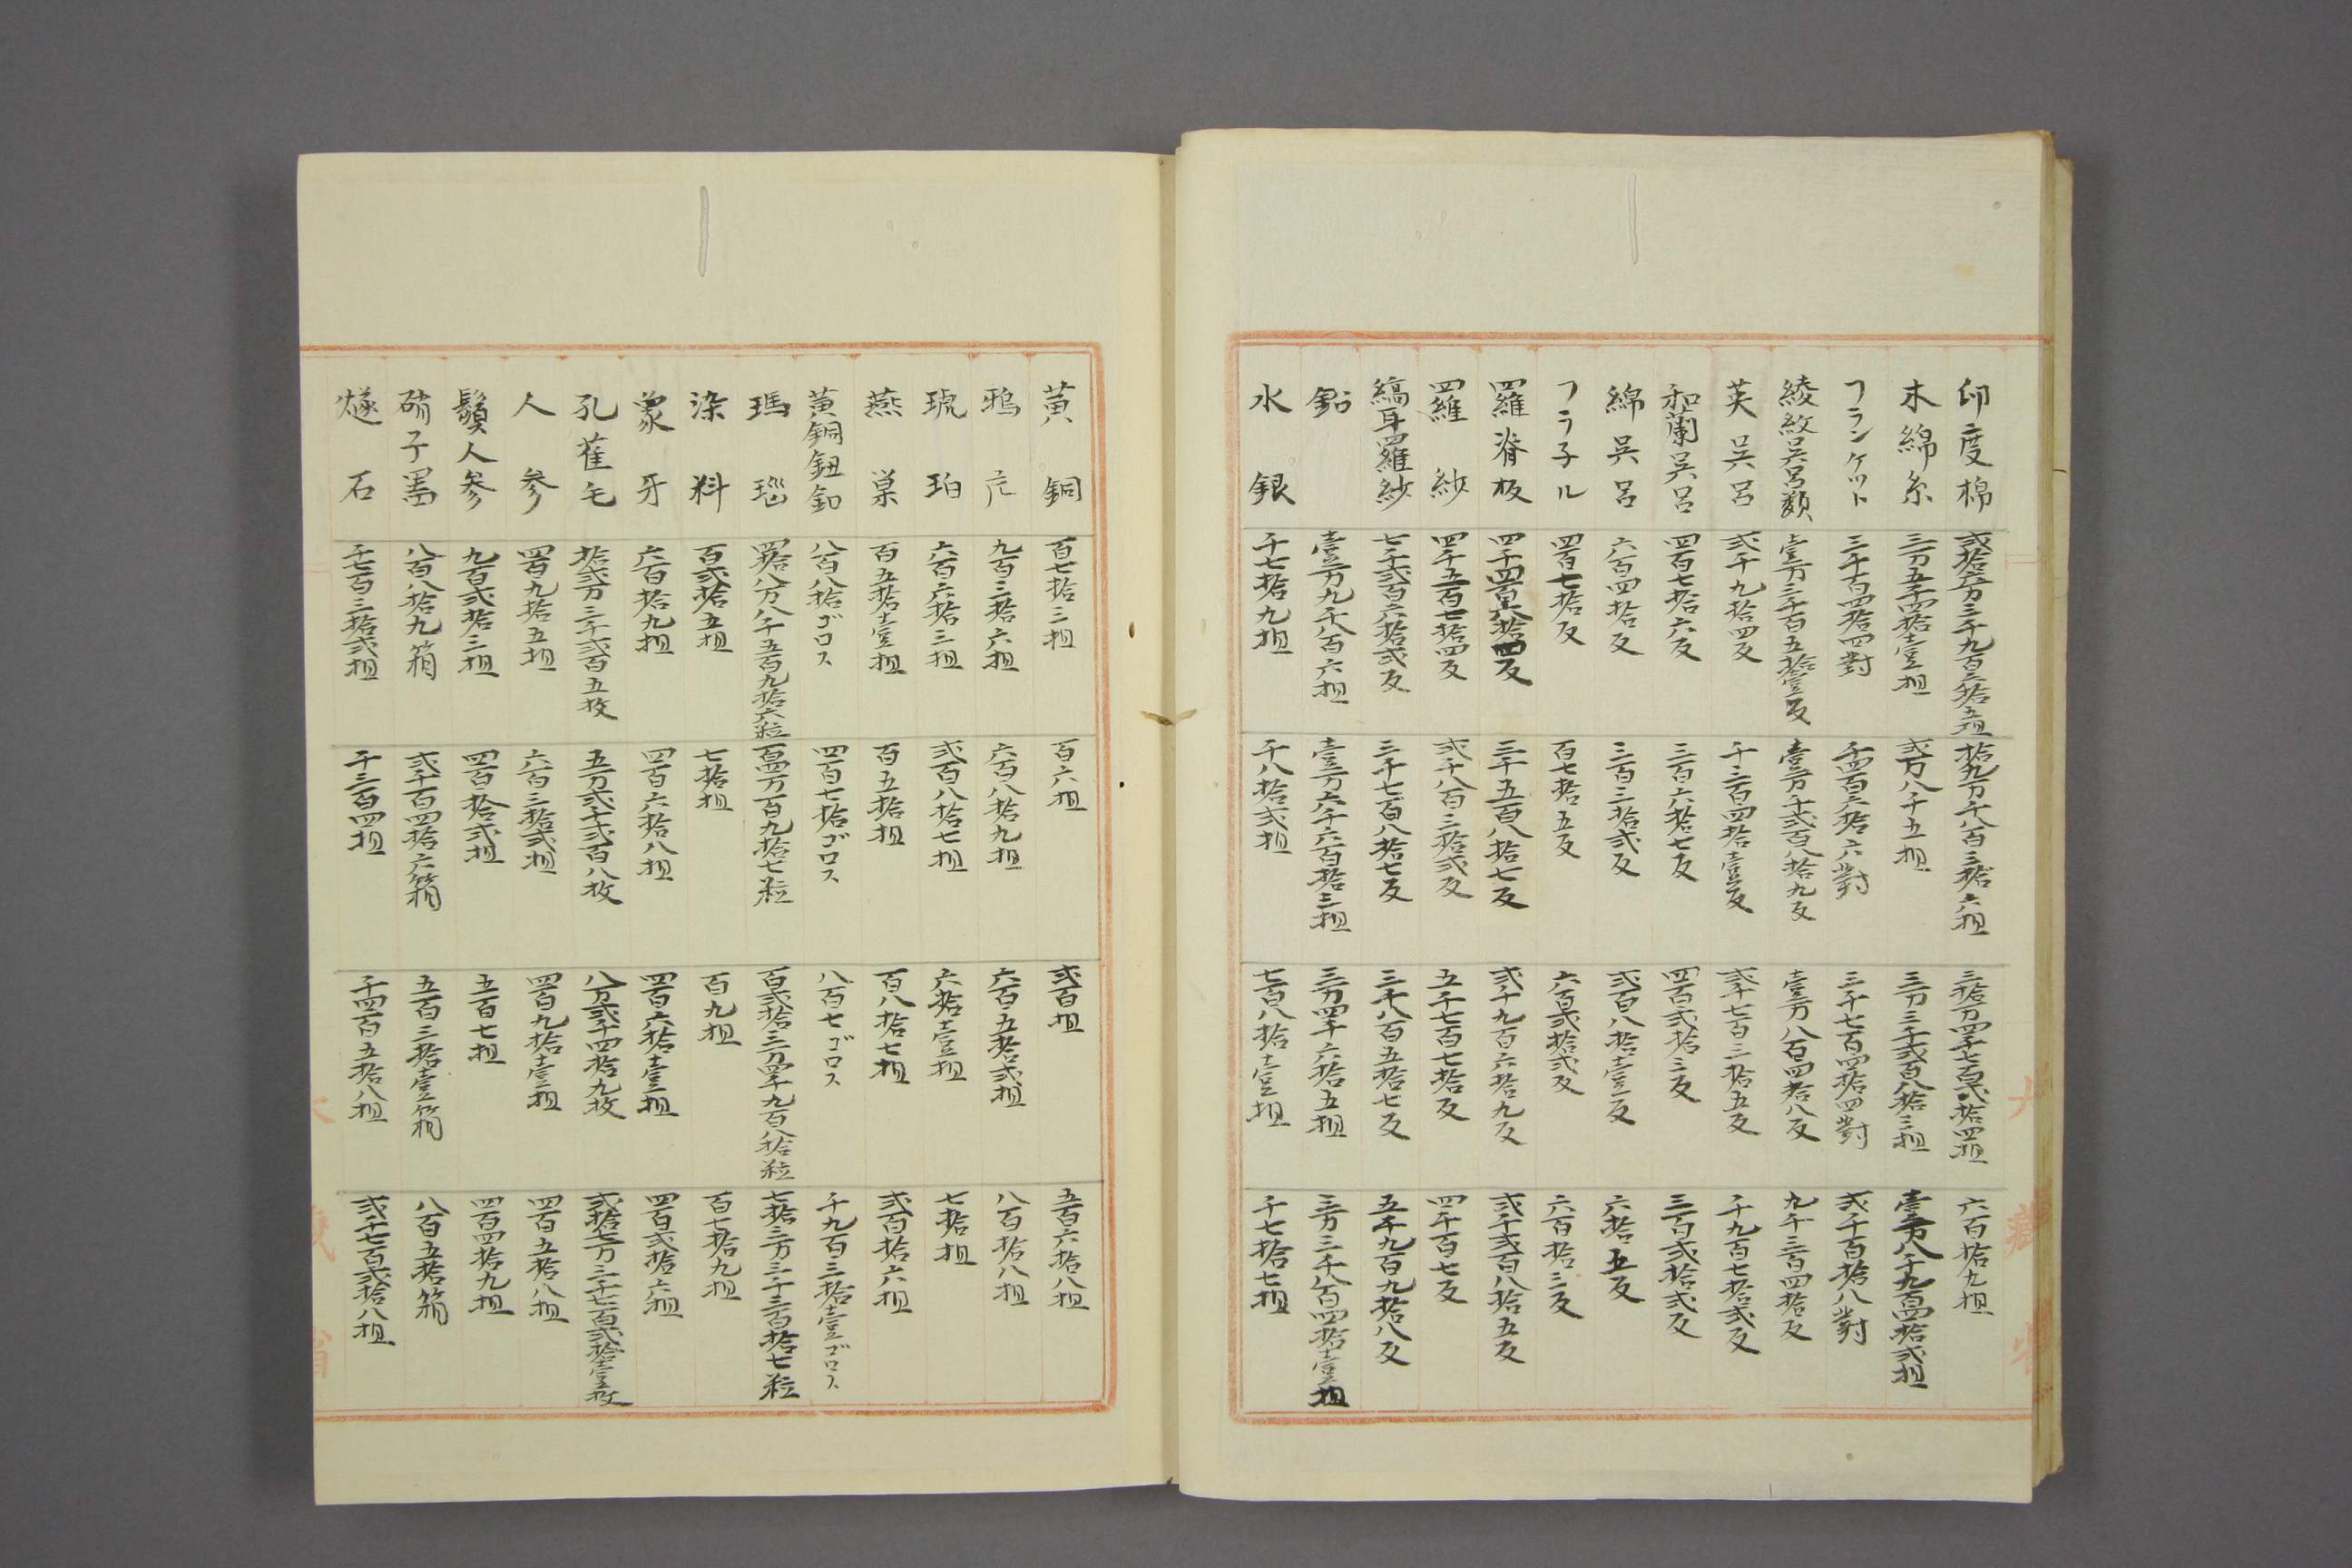 印度棉 弐拾六万三千九百三拾五担 拾九万千八百三拾六担 三拾万四千七百弐拾四担 六百拾九担
木綿糸 三万五千四拾壹担 弐万八千五担 三万三千弐百八拾三担 壹万八千九百四拾弐担
フランケット 三千百四拾四對 千四百六拾六對 三千七百四拾四對 弐千百拾八對
綾紋呉呂類 壹万三千百五拾壹反 壹万千弐百八拾九反 壹万八百四拾八反 九千三百四拾反
英呉呂 弐千九拾四反 千三百四拾壹反 弐千七百三拾五反 千九百七拾弐反
和蘭呉呂 四百七拾六反 三百六拾七反 四百弐拾三反 三百弐拾弐反
綿呉呂 六百四拾反 三百三拾弐反 弐百八拾壹反 六拾五反
フラ子ル 四百七拾反 百七拾五反 六百弐拾弐反 六百拾三反
羅脊板 四千四百六拾四反 三千五百八拾七反 弐千九百六拾九反 弐千弐百八拾五反
羅紗 四千五百七拾四反 弐千八百三拾弐反 五千七百七拾反 四千百七反
縞耳羅紗 七千弐百六拾弐反 三千七百八拾七反 三千八百五拾七反 五千九百九拾八反
鉛 壹万九千八百六担 壹万六千六百拾三担 三万四千六拾五担 三万三千八百四拾壹担
水銀 千七拾九担 千八拾弐担 七百八拾壹担 千七拾七担
黄銅 百七拾三担 百六担 弐百担 五百六拾八担
鴉片 九百三拾六担 六百八拾九担 六百五拾弐担 八百拾八担
琥珀 六百六拾三担 弐百八拾七担 六拾壹担 七拾担
燕巣 百五拾壹担 百五拾担 百八拾七担 弐百拾六担
黄銅鈕釦 八百八拾ゴロス 四百七拾ゴロス 八百七ゴロス 千九百三拾壹ゴロス
瑪瑙 四拾八万八千五百九拾六粒 百四万百九拾七粒 百弐拾三万四千九百八拾粒 七拾三万三千三百拾七粒
染料 百弐拾五担 七拾担 百九担 百七拾九担
象牙 六百拾九担 四百六拾八担 四百六拾壹担 四百弐拾六担
孔雀毛 拾弐万三千弐百五枚 五万弐千弐百八枚 八万弐千四拾九枚 弐拾七万三千七百弐拾壹枚
人参 四百九拾五担 六百三拾弐担 四百九拾壹担 四百五拾八担
鬚人参 九百弐拾三担 四百拾弐担 五百七担 四百四拾九担
硝子墨 八百八拾九箱 弐千百四拾六箱 五百三拾壹箱 八百五拾箱
燧石 千七百三拾弐担 千三百四担 千四百五拾八担 弐千七百弐拾八担